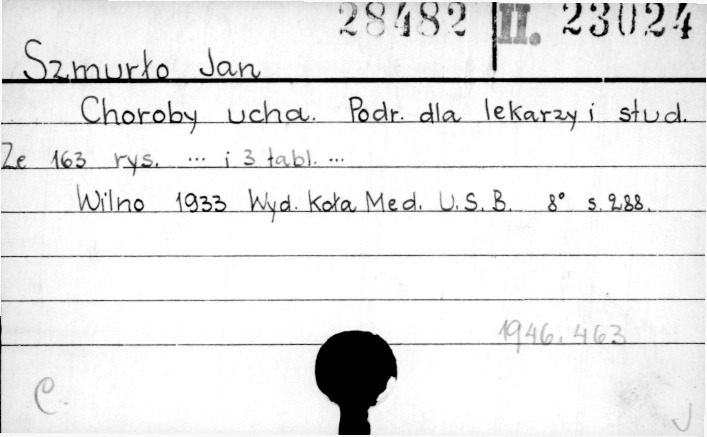 28482 II. 23024
Szmurło Jan
Choroby ucha. Podr. dla lekarzy i stud.
Ze 163 rys. ... i 3 tabl. ...
Wilno 1933 Wyd. Koła Med. U.S.B. 8° s. 288.
1946.463
C.
J